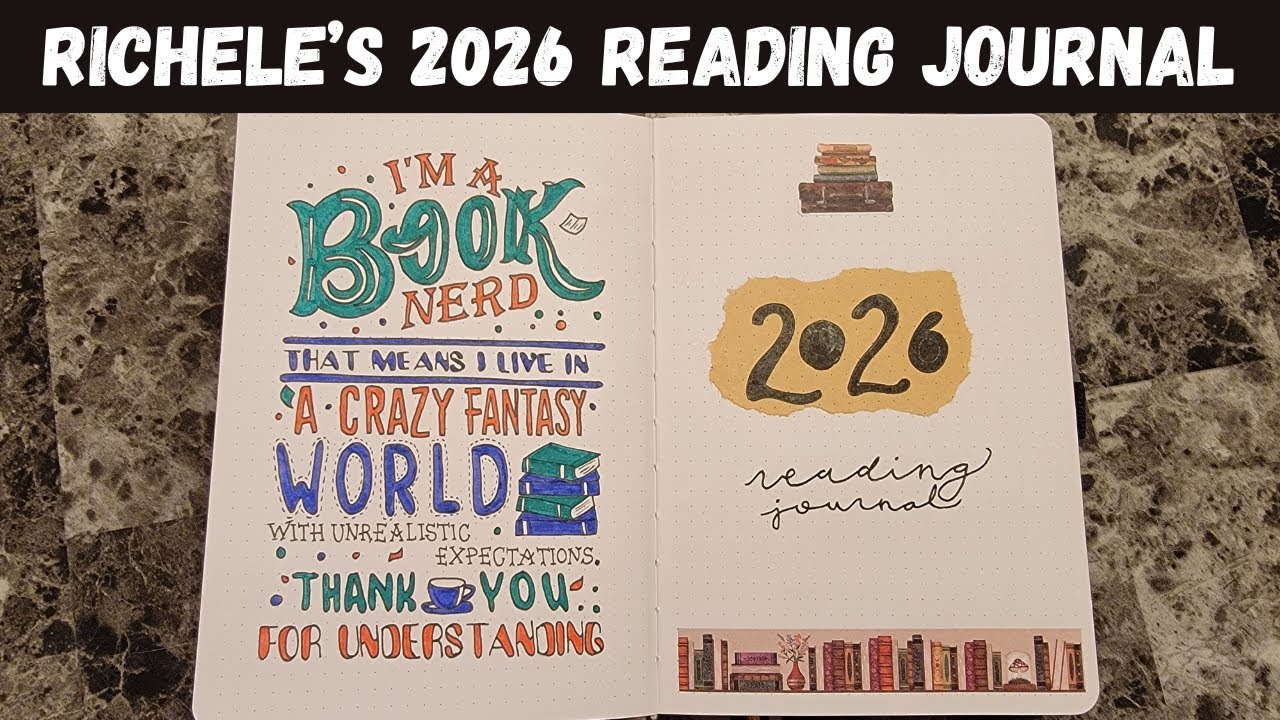 RICHELE'S 2026 READING JOURNAL
I'M A
BOOK
NERD
THAT MEANS I LIVE IN
A CRAZY FANTASY
WORLD
WITH UNREALISTIC
EXPECTATIONS.
THANK YOU
FOR UNDERSTANDING
2026
reading
journal